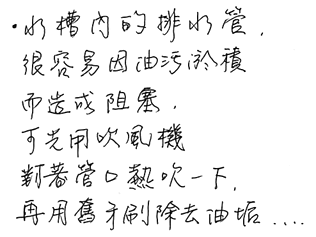 ·水槽內的排水管，
很容易因油污淤積
而造成阻塞，
可先用吹風機
對著管口熱吹一下，
再用舊牙刷除去油垢....